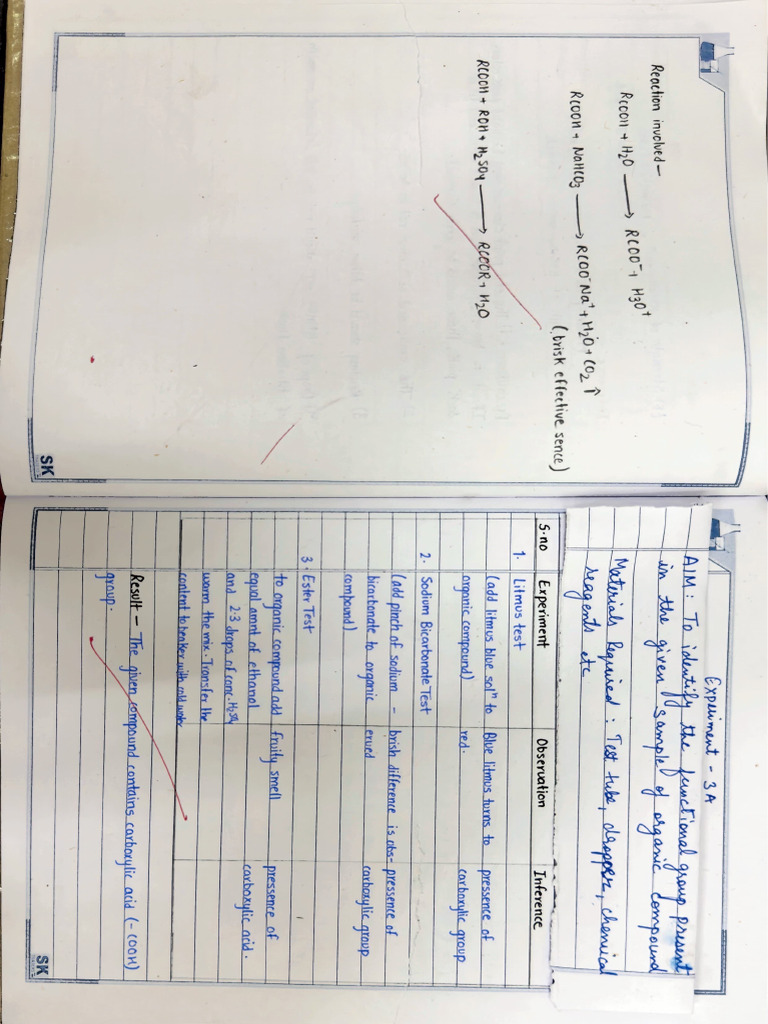 Reaction involved –
RCOOH + H2O ⟶ RCOO⁻ + H3O⁺
RCOOH + NaHCO3 ⟶ RCOO⁻Na⁺ + H2O + CO2 ↑
(brisk effective sence)
RCOOH + ROH + H2SO4 ⟶ RCOOR + H2O
SK
Experiment - 3A
AIM : To identify the functional group present
in the given sample of organic compound
Materials Required : Test tube, dropper, chemical
reagents etc
S.no Experiment Observation Inference
1. Litmus test
(add litmus blue solⁿ to Blue litmus turns to pressence of
organic compound) red. carboxylic group
2. Sodium Bicarbonate Test
(add pinch of sodium – brish difference is obs- pressence of
bicarbonate to organic erued carboxylic group
compound)
3. Ester Test
to organic compound add fruity smell pressence of
equal amnt of ethanol carboxylic acid.
and 2-3 drops of conc. H2SO4
warm the mix. Transfer the
content to beaker with cold water
Result – The given compound contains carboxylic acid (-COOH)
group.
SK